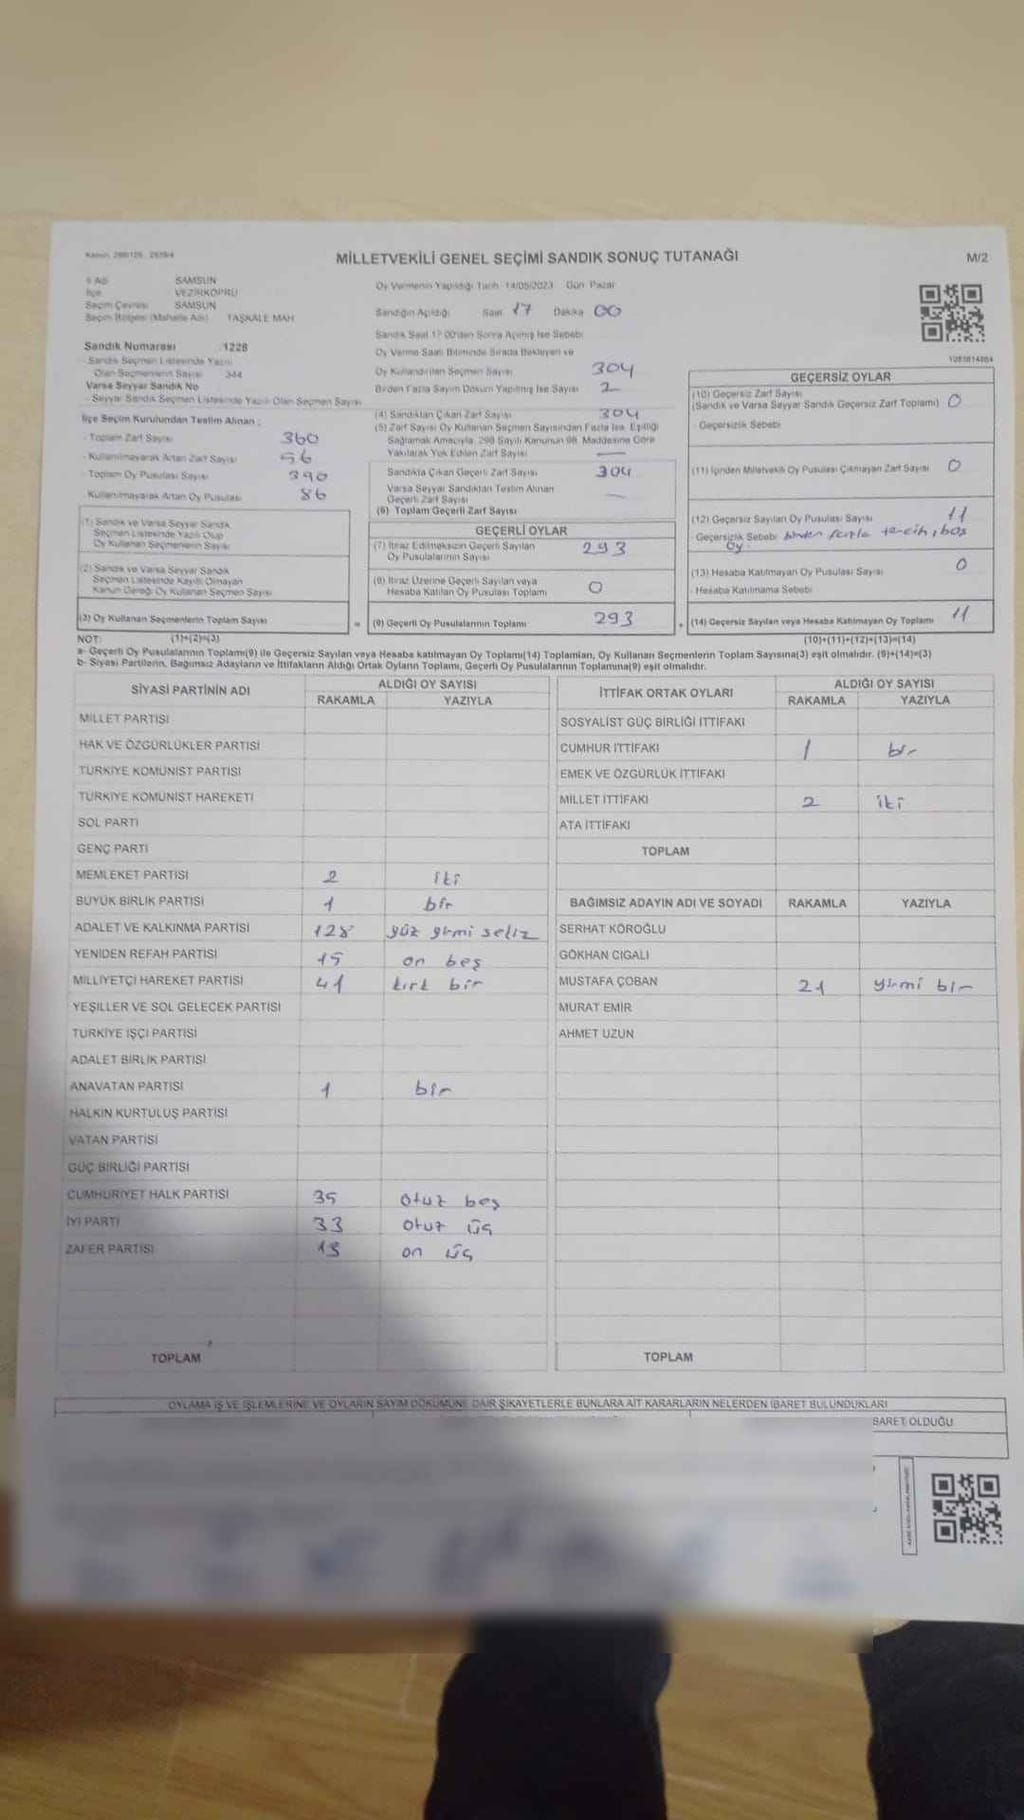 Kanun: 298/105 2839/4
MİLLETVEKİLİ GENEL SEÇİMİ SANDIK SONUÇ TUTANAĞI
M/2
İl Adı SAMSUN
İlçe VEZİRKÖPRÜ
Seçim Çevresi SAMSUN
Seçim Bölgesi (Mahalle Adı) TAŞKALE MAH
Sandık Numarası 1228
Sandık Seçmen Listesinde Yazılı
Olan Seçmenlerin Sayısı 344
Varsa Seyyar Sandık No
- Seyyar Sandık Seçmen Listesinde Yazılı Olan Seçmen Sayısı
İlçe Seçim Kurulundan Teslim Alınan ;
- Toplam Zarf Sayısı 360
- Kullanılmayarak Artan Zarf Sayısı 56
- Toplam Oy Pusulası Sayısı 390
- Kullanılmayarak Artan Oy Pusulası 86
(1) Sandık ve Varsa Seyyar Sandık
Seçmen Listesinde Yazılı Olup
Oy Kullanan Seçmenlerin Sayısı
(2) Sandık ve Varsa Seyyar Sandık
Seçmen Listesinde Kayıtlı Olmayan
Kanun Gereği Oy Kullanan Seçmen Sayısı
(3) Oy Kullanan Seçmenlerin Toplam Sayısı
(1)+(2)=(3)
Oy Vermenin Yapıldığı Tarih 14/05/2023 Gün Pazar
Sandığın Açıldığı Saat 17 Dakika 00
Sandık Saat 17:00'den Sonra Açılmış İse Sebebi
Oy Verme Saati Bitiminde Sırada Bekleyen ve
Oy Kullandırılan Seçmen Sayısı 304
Birden Fazla Sayım Döküm Yapılmış İse Sayısı 2
(4) Sandıktan Çıkan Zarf Sayısı 304
(5) Zarf Sayısı Oy Kullanan Seçmen Sayısından Fazla İse, Eşitliği
Sağlamak Amacıyla, 298 Sayılı Kanunun 98. Maddesine Göre
Yakılarak Yok Edilen Zarf Sayısı —
Sandıkta Çıkan Geçerli Zarf Sayısı 304
Varsa Seyyar Sandıktan Teslim Alınan
Geçerli Zarf Sayısı —
(6) Toplam Geçerli Zarf Sayısı
GEÇERLİ OYLAR
(7) İtiraz Edilmeksizin Geçerli Sayılan
Oy Pusulalarının Sayısı 293
(8) İtiraz Üzerine Geçerli Sayılan veya
Hesaba Katılan Oy Pusulası Toplamı 0
= (9) Geçerli Oy Pusulalarının Toplamı 293 +
1083814864
GEÇERSİZ OYLAR
(10) Geçersiz Zarf Sayısı
(Sandık ve Varsa Seyyar Sandık Geçersiz Zarf Toplamı) 0
- Geçersizlik Sebebi
(11) İçinden Milletvekili Oy Pusulası Çıkmayan Zarf Sayısı 0
(12) Geçersiz Sayılan Oy Pusulası Sayısı 11
- Geçersizlik Sebebi birden fazla tercih, boş
oy
(13) Hesaba Katılmayan Oy Pusulası Sayısı 0
- Hesaba Katılmama Sebebi
(14) Geçersiz Sayılan veya Hesaba Katılmayan Oy Toplamı 11
(10)+(11)+(12)+(13)=(14)
NOT:
a- Geçerli Oy Pusulalarının Toplamı(9) ile Geçersiz Sayılan veya Hesaba katılmayan Oy Toplamı(14) Toplamları, Oy Kullanan Seçmenlerin Toplam Sayısına(3) eşit olmalıdır. (9)+(14)=(3)
b- Siyasi Partilerin, Bağımsız Adayların ve İttifakların Aldığı Ortak Oyların Toplamı, Geçerli Oy Pusulalarının Toplamına(9) eşit olmalıdır.
SİYASİ PARTİNİN ADI ALDIĞI OY SAYISI
RAKAMLA YAZIYLA
MİLLET PARTİSİ
HAK VE ÖZGÜRLÜKLER PARTİSİ
TÜRKİYE KOMÜNİST PARTİSİ
TÜRKİYE KOMÜNİST HAREKETİ
SOL PARTİ
GENÇ PARTİ
MEMLEKET PARTİSİ 2 iki
BÜYÜK BİRLİK PARTİSİ 1 bir
ADALET VE KALKINMA PARTİSİ 128 yüz yirmi sekiz
YENİDEN REFAH PARTİSİ 15 on beş
MİLLİYETÇİ HAREKET PARTİSİ 41 kırk bir
YEŞİLLER VE SOL GELECEK PARTİSİ
TÜRKİYE İŞÇİ PARTİSİ
ADALET BİRLİK PARTİSİ
ANAVATAN PARTİSİ 1 bir
HALKIN KURTULUŞ PARTİSİ
VATAN PARTİSİ
GÜÇ BİRLİĞİ PARTİSİ
CUMHURİYET HALK PARTİSİ 35 otuz beş
İYİ PARTİ 33 otuz üç
ZAFER PARTİSİ 13 on üç
TOPLAM
İTTİFAK ORTAK OYLARI ALDIĞI OY SAYISI
RAKAMLA YAZIYLA
SOSYALİST GÜÇ BİRLİĞİ İTTİFAKI
CUMHUR İTTİFAKI 1 bir
EMEK VE ÖZGÜRLÜK İTTİFAKI
MİLLET İTTİFAKI 2 iki
ATA İTTİFAKI
TOPLAM
BAĞIMSIZ ADAYIN ADI VE SOYADI RAKAMLA YAZIYLA
SERHAT KÖROĞLU
GÖKHAN CIGALI
MUSTAFA ÇOBAN 21 yirmi bir
MURAT EMİR
AHMET UZUN
TOPLAM
OYLAMA İŞ VE İŞLEMLERİNE VE OYLARIN SAYIM DÖKÜMÜNE DAİR ŞİKAYETLERLE BUNLARA AİT KARARLARIN NELERDEN İBARET BULUNDUKLARI
BARET OLDUĞU